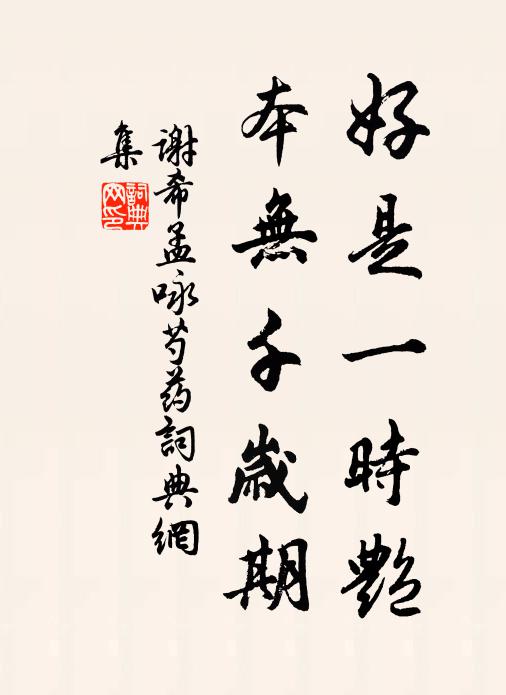 好是一時艷
本無千歲期
謝希孟咏芍药詞典網
集
詞典
网印